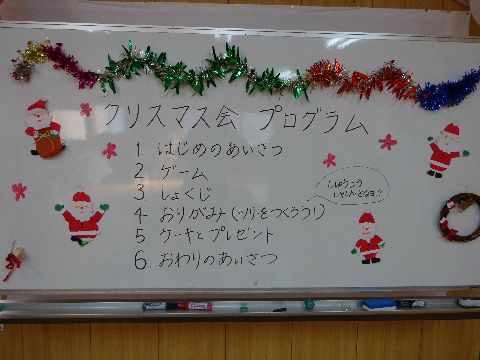 クリスマス会 プログラム
1. はじめのあいさつ
2. ゲーム
3. しょくじ
4. おりがみ(ツリーをつくろう!)
5. ケーキとプレゼント
6. おわりのあいさつ